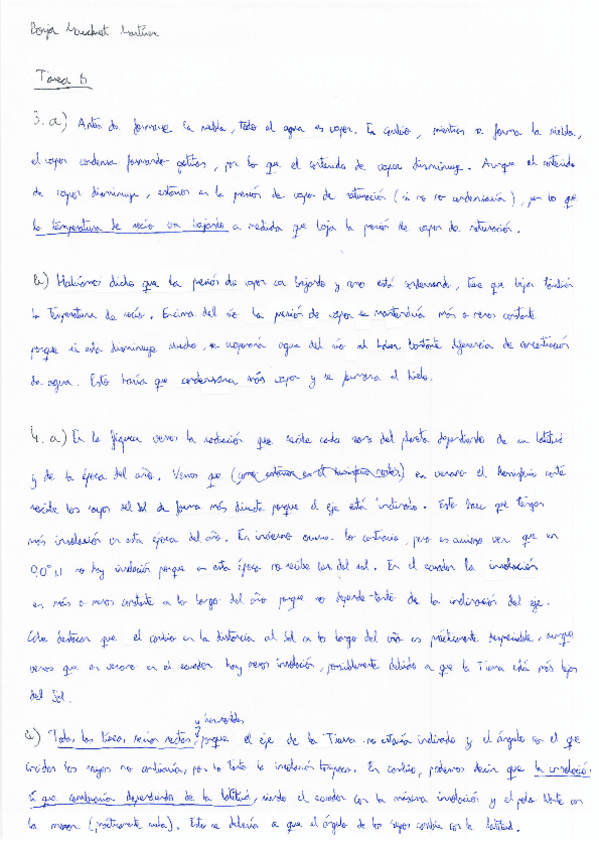 Borja
Tarea 6
3. a) Antes de formarse la niebla, todo el agua es vapor. En cambio, mientras se forma la niebla,
el vapor condensa formando gotitas, por lo que el contenido de vapor disminuye. Aunque el contenido
de vapor disminuya, estamos en la presión de vapor de saturación (si no no condensaría), por lo que
la temperatura de rocío va bajando a medida que baja la presión de vapor de saturación.
b) Habíamos dicho que la presión de vapor va bajando y como está condensando, tiene que bajar también
la temperatura de rocío. Encima del río la presión de vapor se mantendría más o menos constante
porque si esta disminuye mucho, se vaporaría agua del río al haber bastante diferencia de concentración
de agua. Esto haría que condensara más vapor y se formara el hielo.
4. a) En la figura vemos la radiación que recibe cada zona del planeta dependiendo de su latitud
y de la época del año. Vemos que en verano el hemisferio norte
recibe los rayos del Sol de forma más directa porque el eje está inclinado. Esto hace que tengas
más insolación en esta época del año. En invierno ocurre lo contrario, pero es curioso ver que en
90° N no hay insolación porque en esta época no recibe luz del sol. En el ecuador la insolación
es más o menos constante a lo largo del año porque no depende tanto de la inclinación del eje.
Cabe destacar que el cambio en la distancia al Sol a lo largo del año es prácticamente despreciable, aunque
vemos que en verano en el ecuador hay menos insolación, posiblemente debido a que la Tierra está más lejos
del Sol.
y horizontales
b) Todas las líneas serían rectas, porque el eje de la Tierra no estaría inclinado y el ángulo con el que
inciden los rayos no cambiaría, por lo tanto la insolación tampoco. En cambio, podemos decir que la insolación
sí que cambiaría dependiendo de la latitud, siendo el ecuador con la máxima insolación y el polo Norte con
la menor (prácticamente nula). Esto se debería a que el ángulo de los rayos cambia con la latitud.